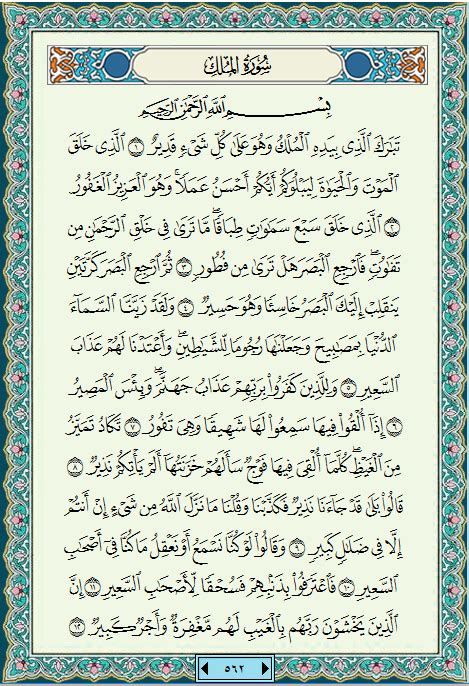 سُورَةُ المُلْكِ
بِسْمِ اللَّهِ الرَّحْمَٰنِ الرَّحِيمِ
تَبَارَكَ الَّذِي بِيَدِهِ الْمُلْكُ وَهُوَ عَلَىٰ كُلِّ شَيْءٍ قَدِيرٌ ۝١ الَّذِي خَلَقَ
الْمَوْتَ وَالْحَيَاةَ لِيَبْلُوَكُمْ أَيُّكُمْ أَحْسَنُ عَمَلًا ۚ وَهُوَ الْعَزِيزُ الْغَفُورُ
۝٢ الَّذِي خَلَقَ سَبْعَ سَمَاوَاتٍ طِبَاقًا ۖ مَّا تَرَىٰ فِي خَلْقِ الرَّحْمَٰنِ مِن
تَفَاوُتٍ ۖ فَارْجِعِ الْبَصَرَ هَلْ تَرَىٰ مِن فُطُورٍ ۝٣ ثُمَّ ارْجِعِ الْبَصَرَ كَرَّتَيْنِ
يَنقَلِبْ إِلَيْكَ الْبَصَرُ خَاسِئًا وَهُوَ حَسِيرٌ ۝٤ وَلَقَدْ زَيَّنَّا السَّمَاءَ
الدُّنْيَا بِمَصَابِيحَ وَجَعَلْنَاهَا رُجُومًا لِّلشَّيَاطِينِ ۖ وَأَعْتَدْنَا لَهُمْ عَذَابَ
السَّعِيرِ ۝٥ وَلِلَّذِينَ كَفَرُوا بِرَبِّهِمْ عَذَابُ جَهَنَّمَ ۖ وَبِئْسَ الْمَصِيرُ
۝٦ إِذَا أُلْقُوا فِيهَا سَمِعُوا لَهَا شَهِيقًا وَهِيَ تَفُورُ ۝٧ تَكَادُ تَمَيَّزُ
مِنَ الْغَيْظِ ۖ كُلَّمَا أُلْقِيَ فِيهَا فَوْجٌ سَأَلَهُمْ خَزَنَتُهَا أَلَمْ يَأْتِكُمْ نَذِيرٌ ۝٨
قَالُوا بَلَىٰ قَدْ جَاءَنَا نَذِيرٌ فَكَذَّبْنَا وَقُلْنَا مَا نَزَّلَ اللَّهُ مِن شَيْءٍ إِنْ أَنتُمْ
إِلَّا فِي ضَلَالٍ كَبِيرٍ ۝٩ وَقَالُوا لَوْ كُنَّا نَسْمَعُ أَوْ نَعْقِلُ مَا كُنَّا فِي أَصْحَابِ
السَّعِيرِ ۝١٠ فَاعْتَرَفُوا بِذَنبِهِمْ فَسُحْقًا لِّأَصْحَابِ السَّعِيرِ ۝١١ إِنَّ
الَّذِينَ يَخْشَوْنَ رَبَّهُم بِالْغَيْبِ لَهُم مَّغْفِرَةٌ وَأَجْرٌ كَبِيرٌ ۝١٢
٥٦٢